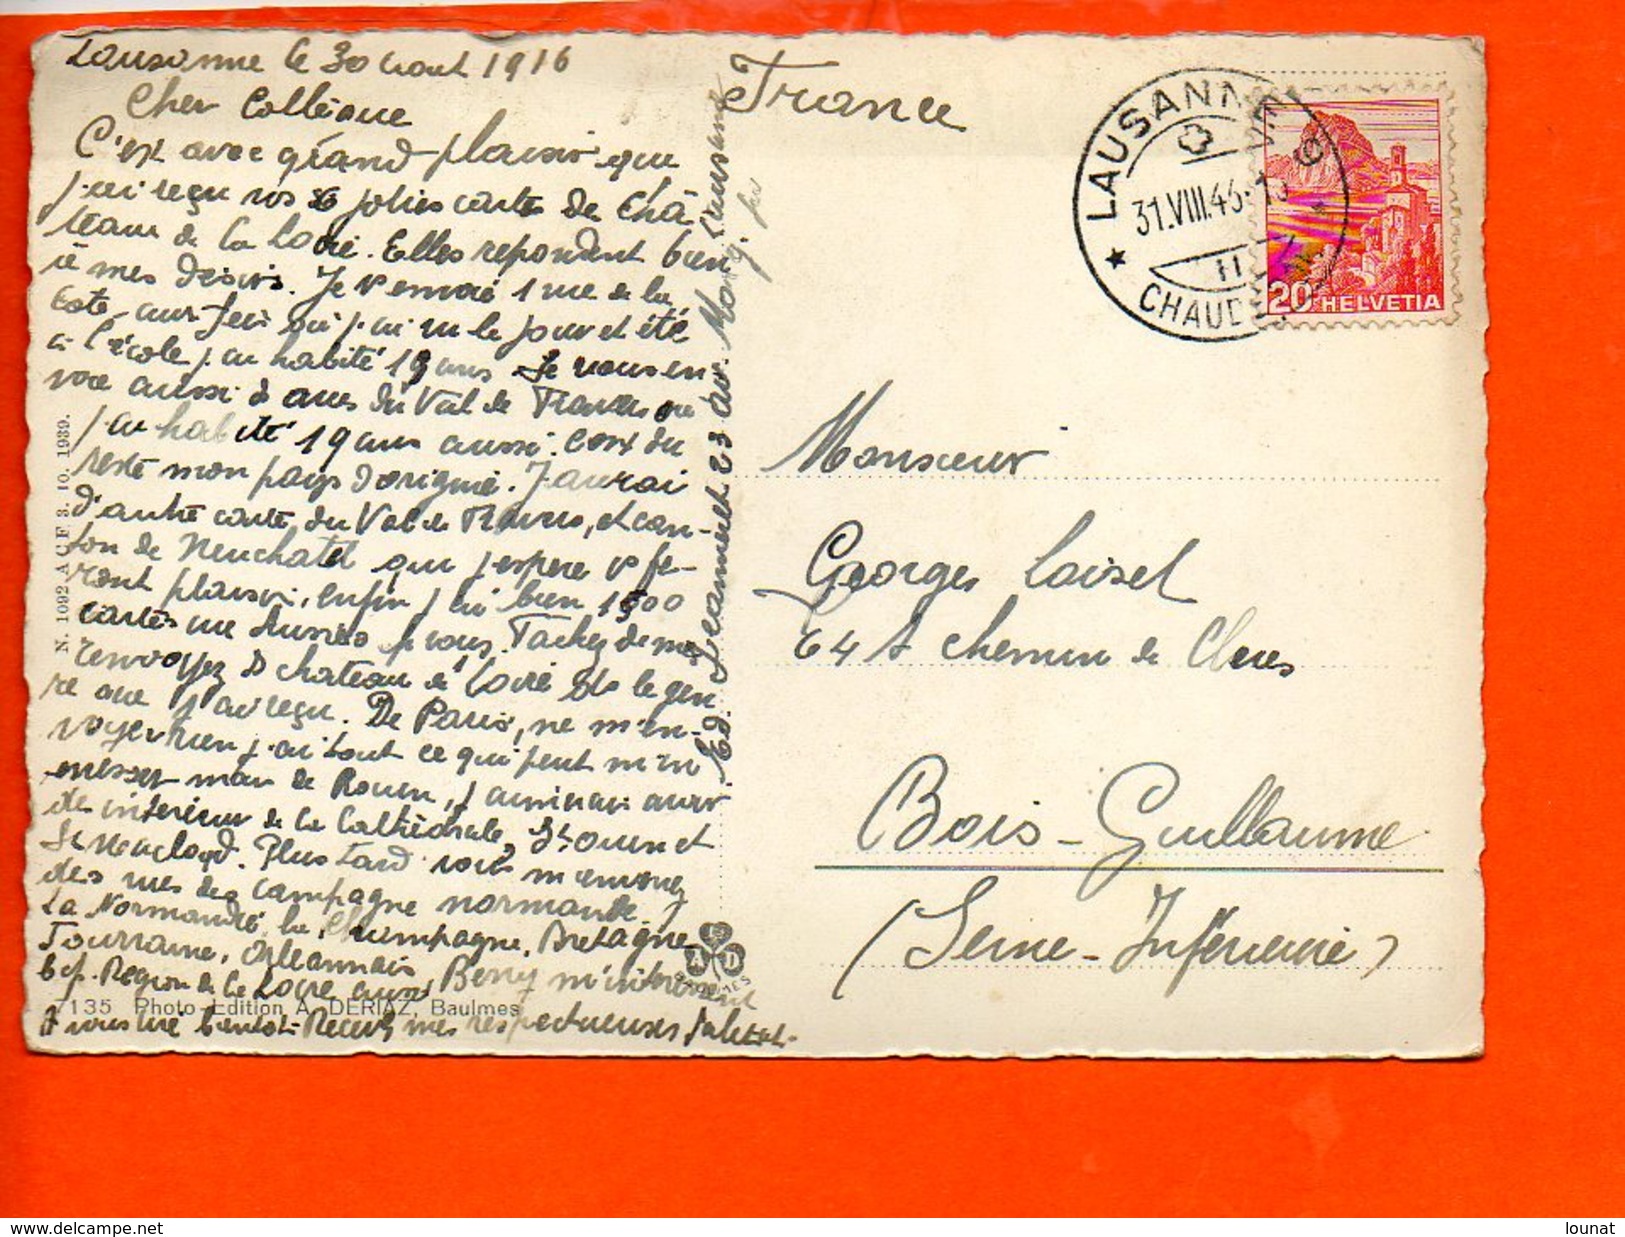 Lausanne le 30 aout 1916
Cher Collègue
C'est avec grand plaisir que
j'ai reçu vos 6 jolies cartes de Châ-
teaux de la Loire. Elles repondent bien
à mes desirs. Je v envoie 1 vue de la
Cote-aux-Feés où j'ai vu le jour et été
à l'école j'ai habité 19 ans Je vous en
voie aussi 2 vues du Val de Travers où
j'ai habité 19 ans aussi. C'est du
reste mon pays d'origine. J'aurai
d'autre carte du Val de Travers, et can-
ton de Neuchatel que j'espere vs fe-
ront plaisir, enfin j'ai bien 1500
cartes vue Suisses pr vous. Tachez de me
renvoyez D chateau de Loire de le gen
re que j'ai reçu. De Paris, ne m'en-
voyer rien j'ai tout ce qui peut m'in
eresser mais de Rouen, j'aimerais avoir
des interieur de la Cathédrale, St. Ouen et
St Plus tard vous m'enverrez
des vues de campagne normande
La Normandie, la Champagne, Bretagne
Tourraine, Orleannais, Berry m'interessent
bcp. Region de la Loire aussi
A vous lire bientot. Recevez mes respectueuses salutat.
Ed. Jeanneret 23 av. Lausanne
N. 1092 A C F 3. 10. 1939.
7135 Photo-Edition A. DERIAZ, Baulmes
A D
BAULMES
France
LAUSANNE
31.VIII.46-10
11
CHAUD
20 HELVETIA
Monsieur
Georges Loisel
64 A chemin de Cleres
Bois-Guillaume
(Seine-Inférieure)
lounat
© delcampe.net